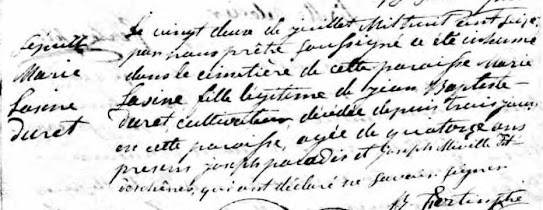 Sepult.
Marie
Lasine
duret
Le vingt deux de juillet Mil huit cent seize,
par nous prêtre soussigné a été inhumé
dans le cimetière de cette paroisse Marie
Lasine fille légitime de jean Baptiste
duret, cultivateur, décédée depuis trois jours
en cette paroisse, agée de quatorze ans
presens joseph paradis et joseph Miville dit
deschênes, qui ont déclaré ne savoir signer